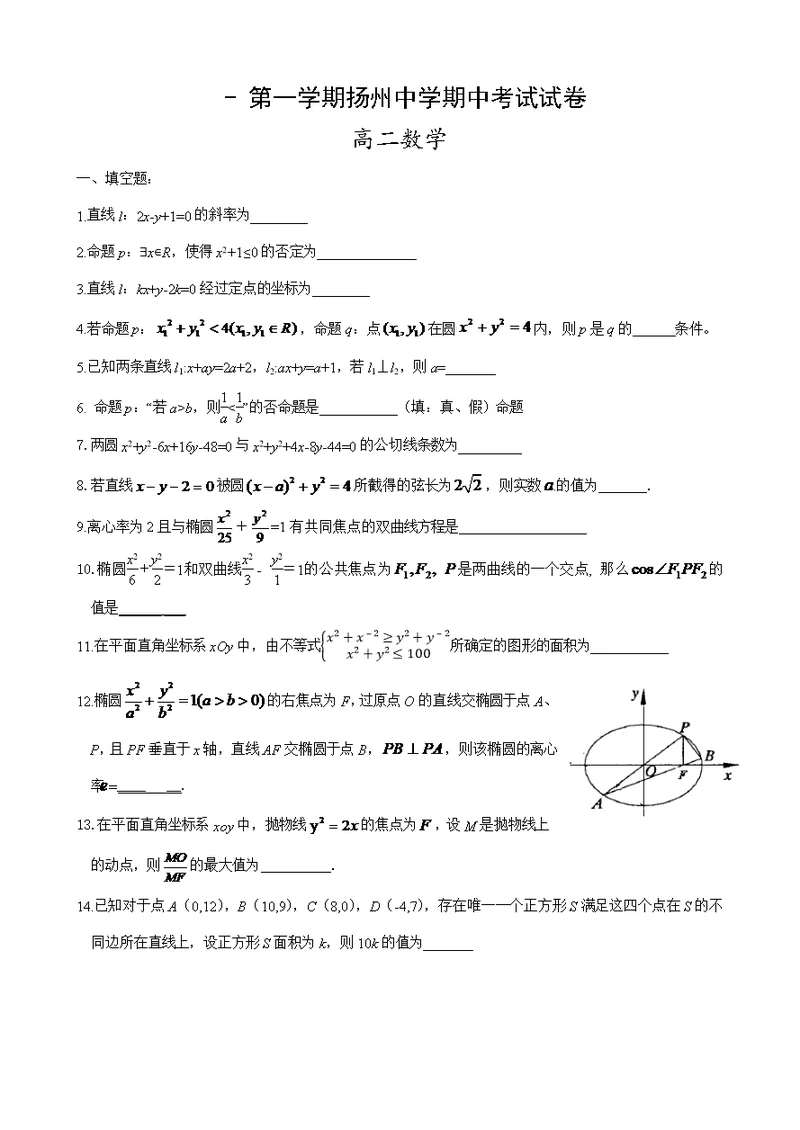 - 第一学期扬州中学期中考试试卷
高二数学
一、填空题：
1.直线l：2x-y+1=0的斜率为________
2.命题p：∃x∈R，使得x²+1≤0的否定为______________
3.直线l：kx+y-2k=0经过定点的坐标为________
4.若命题p：x₁²+y₁²<4(x₁,y₁∈R)，命题q：点(x₁,y₁)在圆x²+y²=4内，则p是q的______条件。
5.已知两条直线l₁:x+ay=2a+2，l₂:ax+y=a+1，若l₁⊥l₂，则a=_______
6. 命题p：“若a>b，则1/a<1/b”的否命题是___________（填：真、假）命题
7.两圆x²+y²-6x+16y-48=0与x²+y²+4x-8y-44=0的公切线条数为_________
8.若直线x-y-2=0被圆(x-a)²+y²=4所截得的弦长为2√2，则实数a的值为_______.
9.离心率为2且与椭圆x²/25+y²/9=1有共同焦点的双曲线方程是__________________
10.椭圆x²/6+y²/2=1和双曲线x²/3-y²/1=1的公共焦点为F₁,F₂, P是两曲线的一个交点, 那么cos∠F₁PF₂的
值是_________
11.在平面直角坐标系xOy中，由不等式{x²+x⁻²≥y²+y⁻² x²+y²≤100所确定的图形的面积为___________
12.椭圆x²/a²+y²/b²=1(a>b>0)的右焦点为F,过原点O的直线交椭圆于点A、
P，且PF垂直于x轴，直线AF交椭圆于点B，PB⊥PA，则该椭圆的离心
率e=____ __.
y
P
B
O
F
x
A
13.在平面直角坐标系xoy中，抛物线y²=2x的焦点为F，设M是抛物线上
的动点，则MO/MF的最大值为__________.
14.已知对于点A（0,12），B（10,9），C（8,0），D（-4,7），存在唯一一个正方形S满足这四个点在S的不
同边所在直线上，设正方形S面积为k，则10k的值为_______